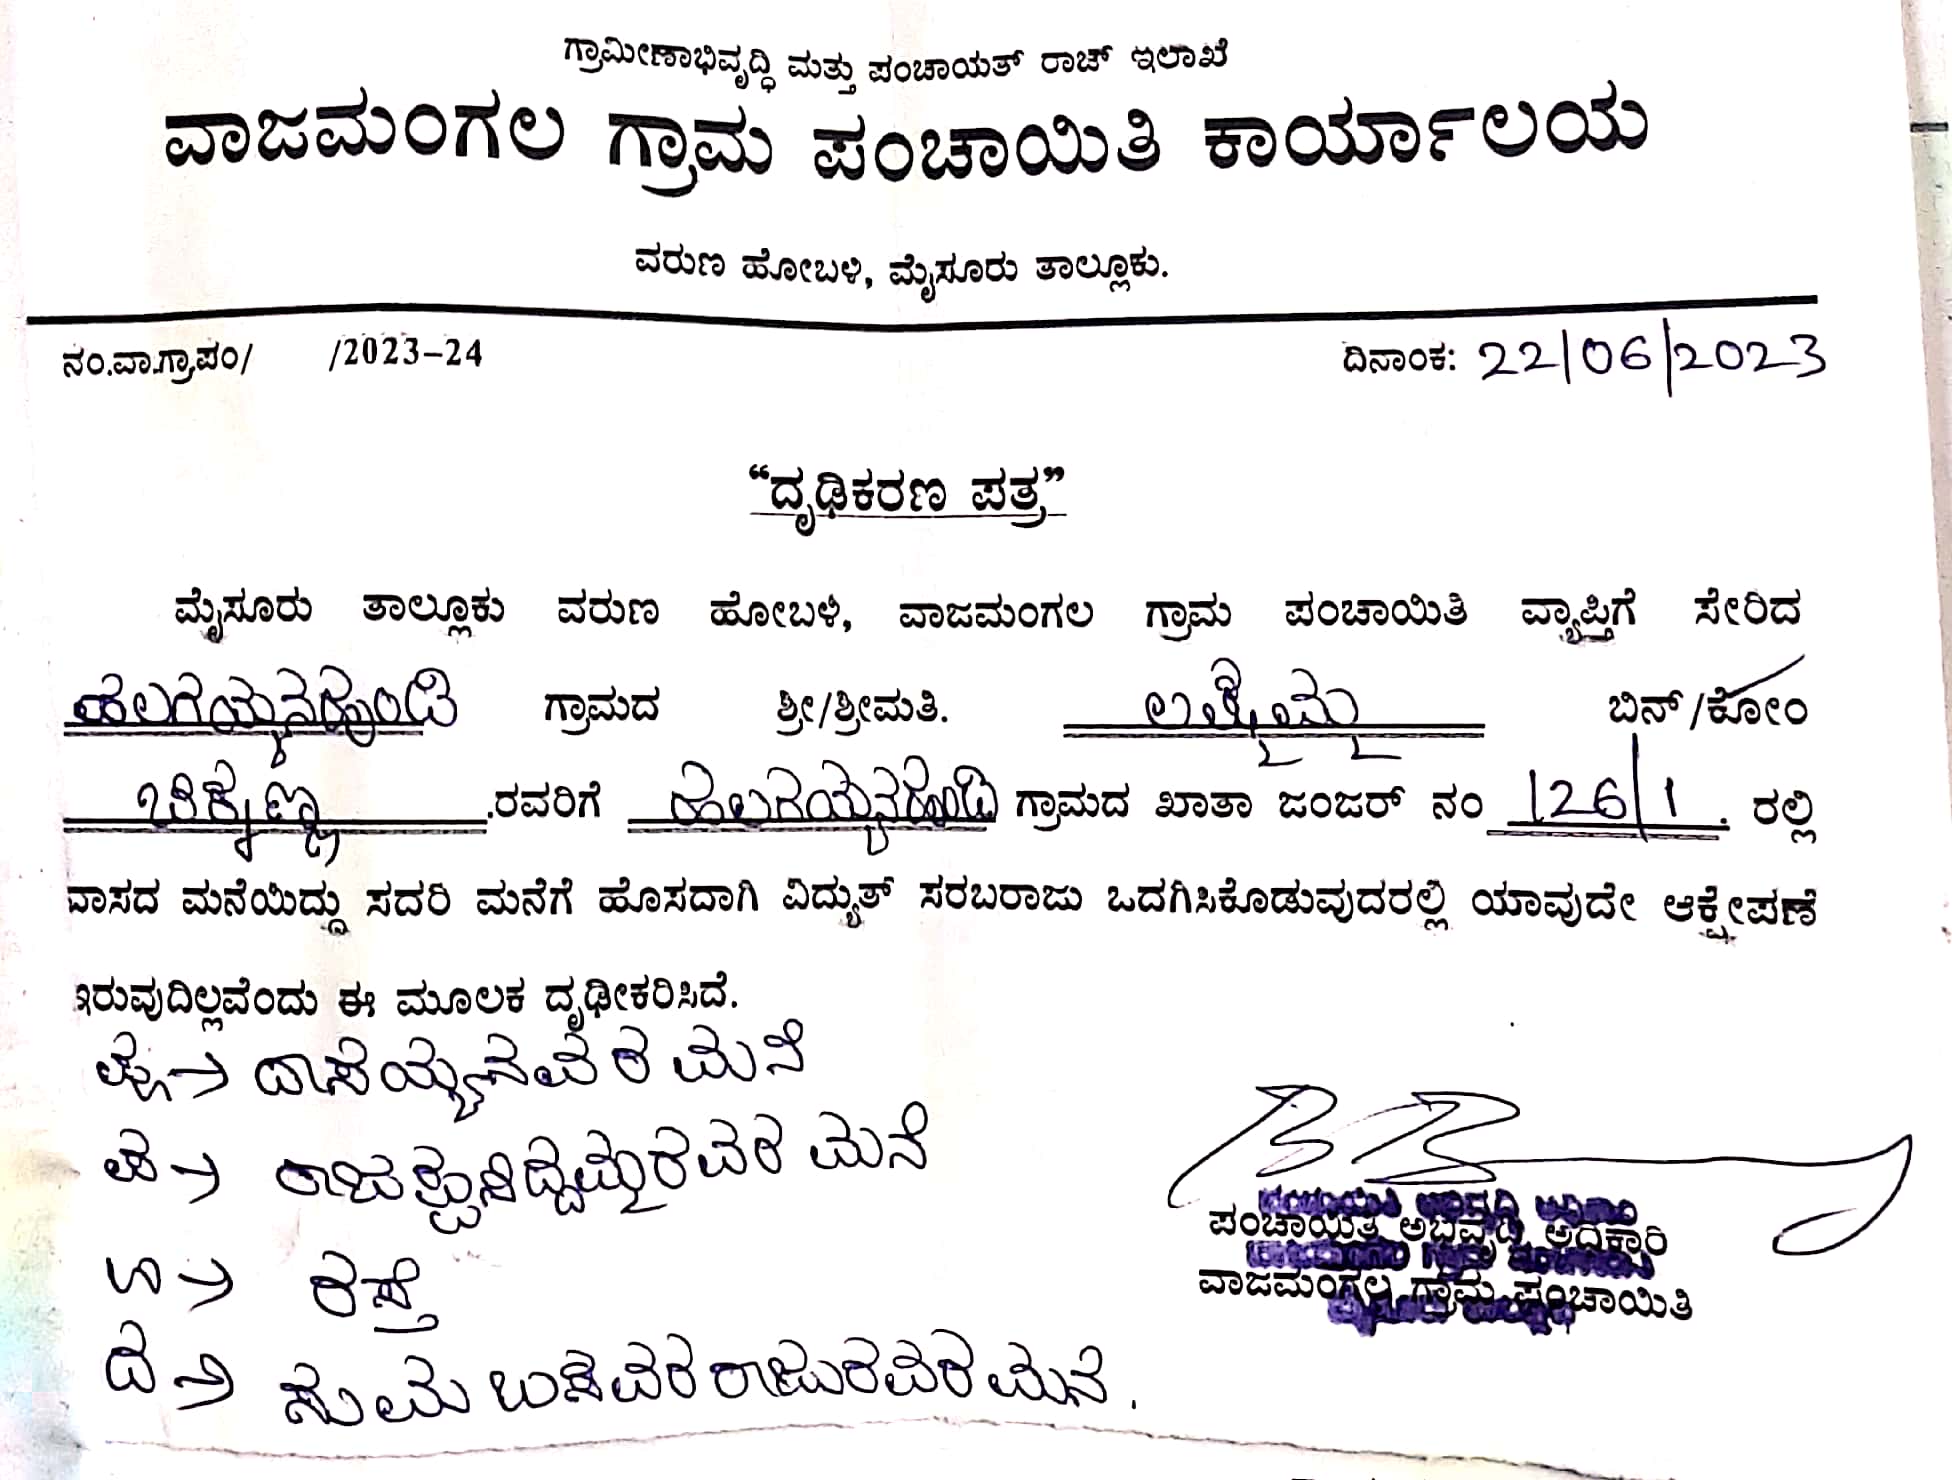 ಗ್ರಾಮೀಣಾಭಿವೃದ್ಧಿ ಮತ್ತು ಪಂಚಾಯತ್ ರಾಜ್ ಇಲಾಖೆ
ವಾಜಮಂಗಲ ಗ್ರಾಮ ಪಂಚಾಯಿತಿ ಕಾರ್ಯಾಲಯ
ವರುಣ ಹೋಬಳಿ, ಮೈಸೂರು ತಾಲ್ಲೂಕು.
ನಂ.ವಾ.ಗ್ರಾಪಂ/ /2023-24 ದಿನಾಂಕ: 22/06/2023
“ದೃಢಿಕರಣ ಪತ್ರ”
ಮೈಸೂರು ತಾಲ್ಲೂಕು ವರುಣ ಹೋಬಳಿ, ವಾಜಮಂಗಲ ಗ್ರಾಮ ಪಂಚಾಯಿತಿ ವ್ಯಾಪ್ತಿಗೆ ಸೇರಿದ
ಹೆಲಗೆಯ್ಯನಹುಂಡಿ ಗ್ರಾಮದ ಶ್ರೀ/ಶ್ರೀಮತಿ. ಲಕ್ಷ್ಮಿಮ್ಮ ಬಿನ್/ಕೋಂ
ಚಿಕ್ಕಣ್ಣ .ರವರಿಗೆ ಹೆಲಗೆಯ್ಯನಹುಂಡಿ ಗ್ರಾಮದ ಖಾತಾ ಜಂಜರ್ ನಂ 126/1. ರಲ್ಲಿ
ವಾಸದ ಮನೆಯಿದ್ದು ಸದರಿ ಮನೆಗೆ ಹೊಸದಾಗಿ ವಿದ್ಯುತ್ ಸರಬರಾಜು ಒದಗಿಸಿಕೊಡುವುದರಲ್ಲಿ ಯಾವುದೇ ಆಕ್ಷೇಪಣೆ
ಇರುವುದಿಲ್ಲವೆಂದು ಈ ಮೂಲಕ ದೃಢೀಕರಿಸಿದೆ.
ಪೂ → ದಾಸೆಯ್ಯನವರ ಮನೆ
ಪ → ಮನೆ
ಉ → ರಸ್ತೆ
ದ → ರಾಜುರವರ ಮನೆ.
ಪಂಚಾಯಿತಿ ಅಭಿವೃದ್ಧಿ ಅಧಿಕಾರಿ
ವಾಜಮಂಗಲ ಗ್ರಾಮ ಪಂಚಾಯಿತಿ